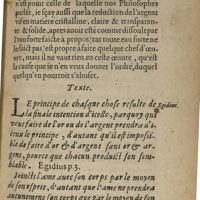 n'est point celle de laquelle nos Philosophes
parlẽt, ie sçay aussi que la reduction de l'argent
en matiere cristalline, claire & transparan-
te & solide, apres auoir esté comme dissoult par
l'eau forte faicte à propos (car toute eau forte ne
le faict pas) est propre à faire quelque chef d'œu-
ure, mais il ne vaut rien en ceste œuure, qui est
la cause que ie n'en veux donner l'ordre, du quel
quelqu'vn pourroit s'abuser.
Texte.
Le principe de chasque chose resulte de
la finale intention d'icelle, parquoy qui
veut faire de l'or ou de l'argent prendra d'i-
ceux le principe, d'autant qu'il est impossi-
ble de faire d'or & d'argent sans or & ar-
gent, pource que chacun produict son sem-
blable. Egidius p. 3.
Egidius.
Ioincts l'ame auec son corps par le moyen
de son esprit, d'autant que l'ame ne prendra
aucunement son corps que par le moyen de son